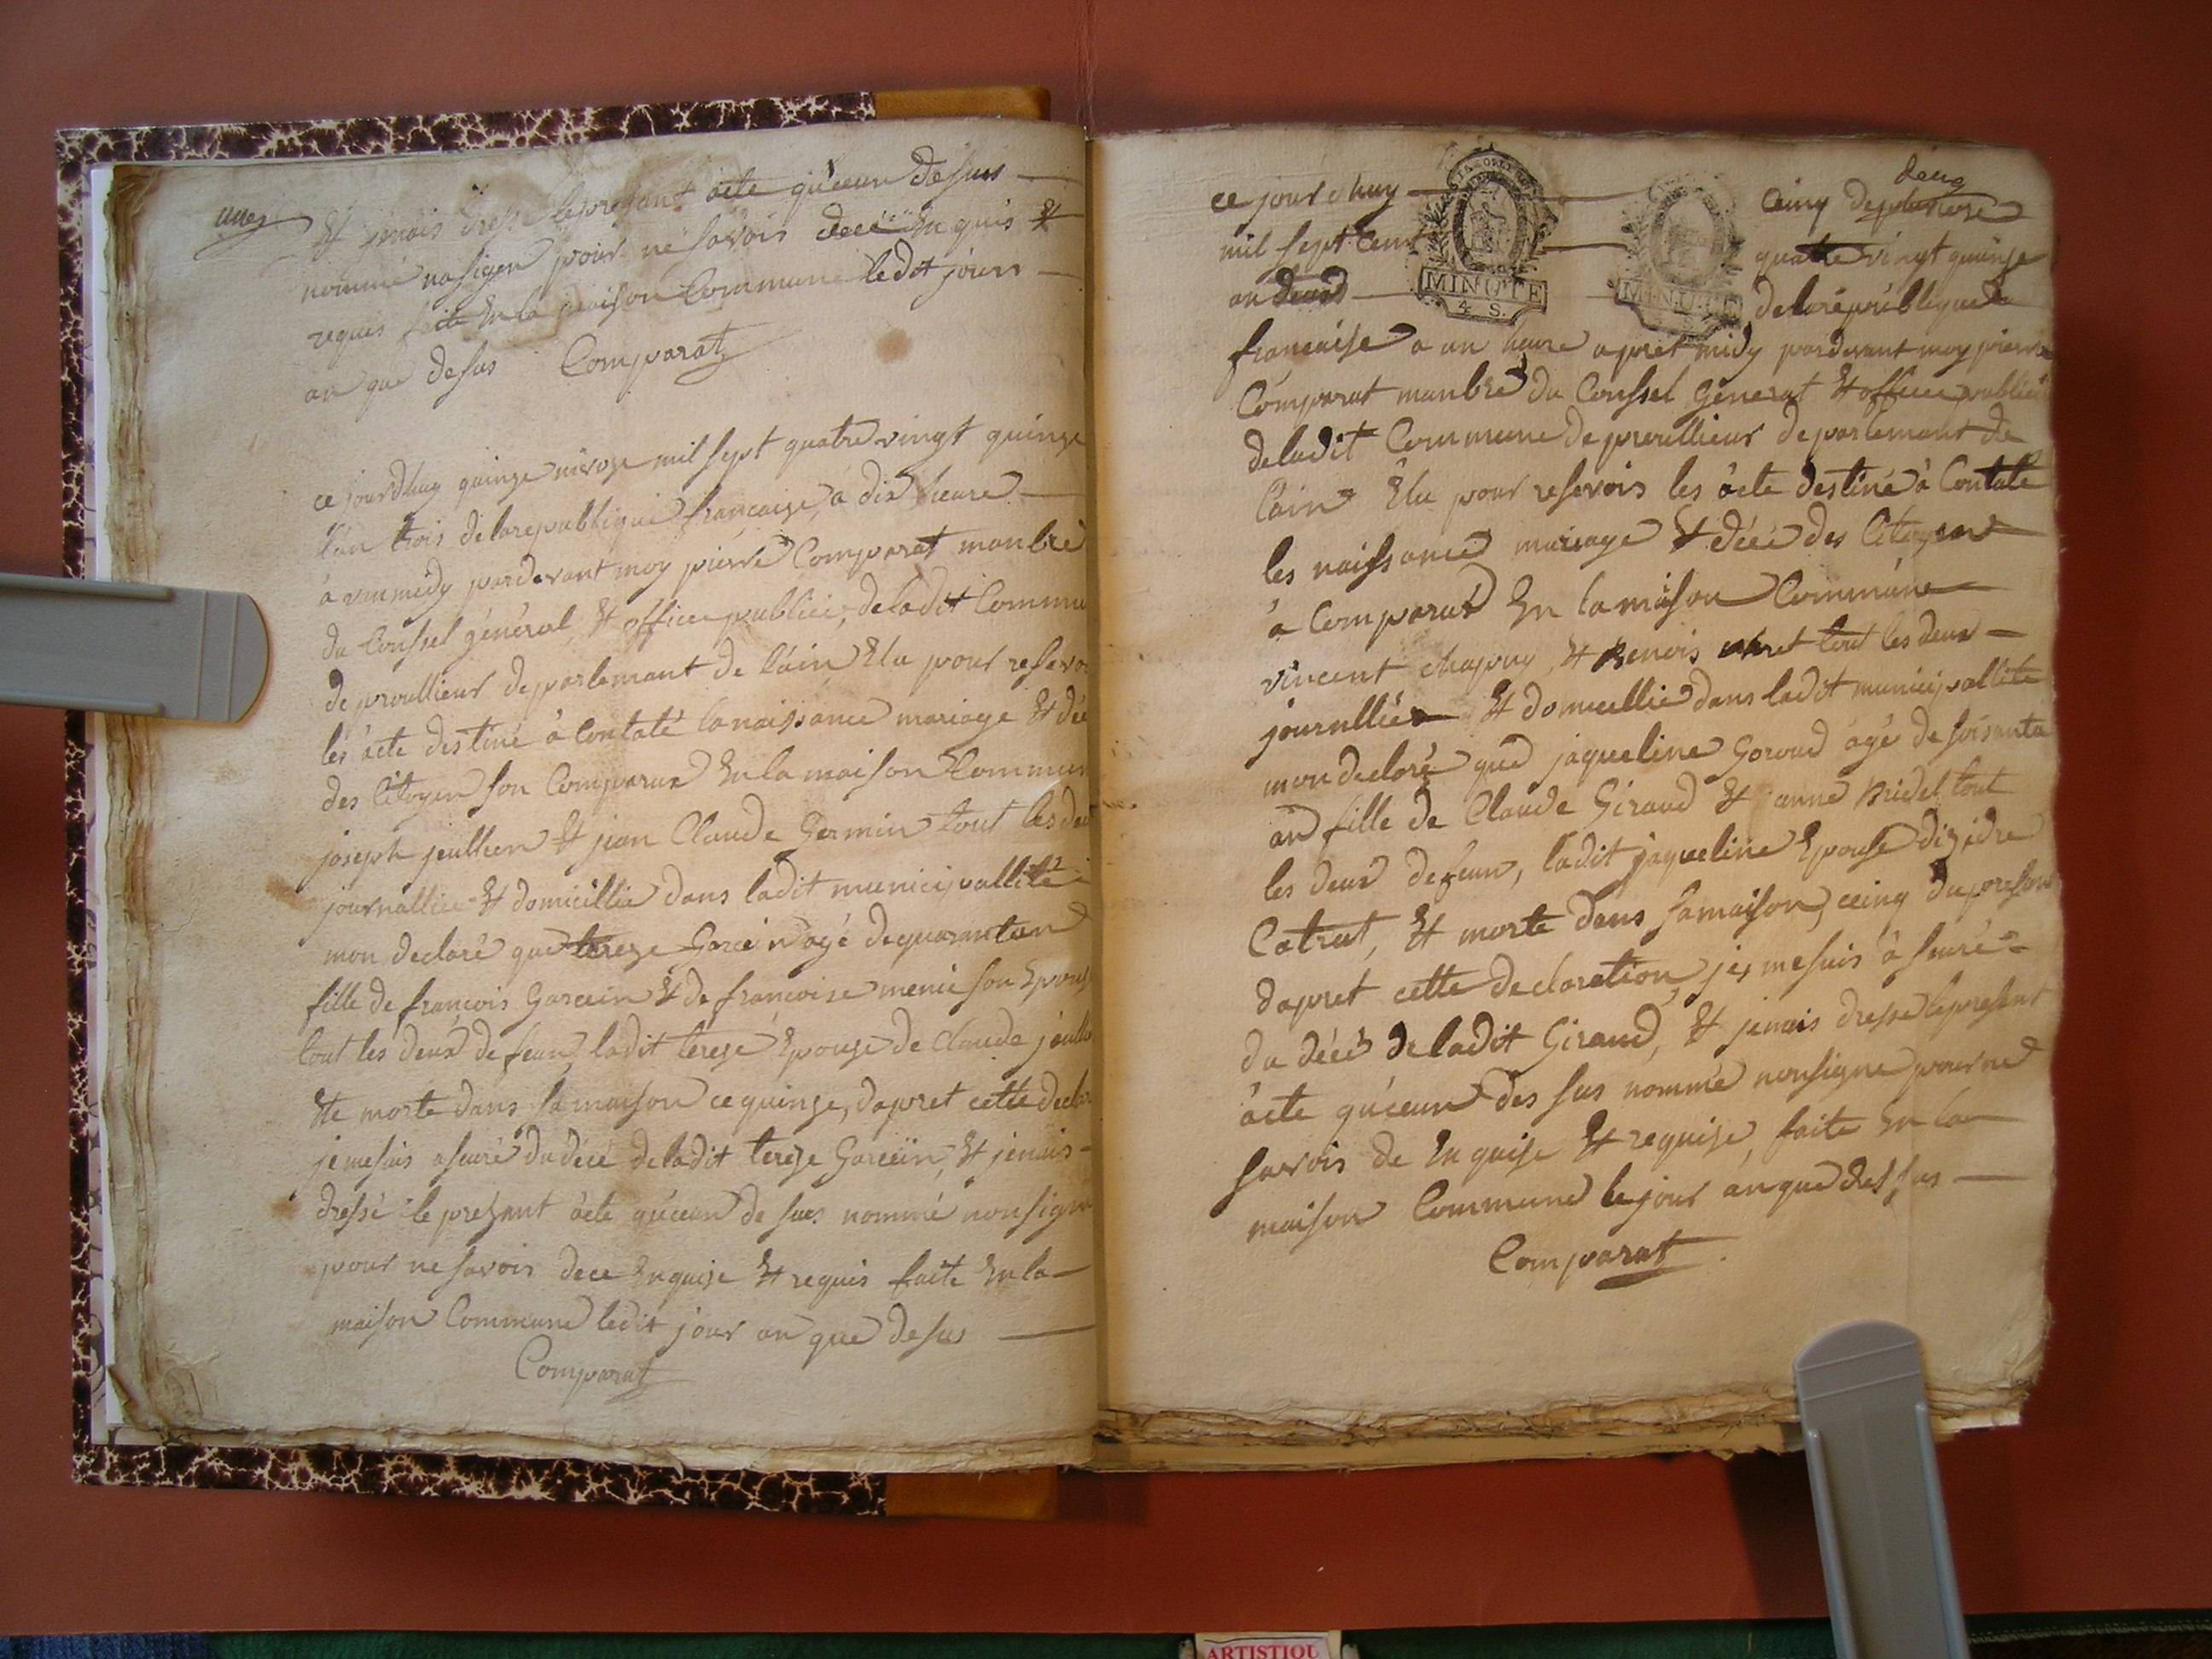 Et jenais dressé le presant acte qu'ceun desus
nommé nosigen pour ne savois decé Enquis Et
requis faite En la maison Commune ledit jour
an que desus Comparat
ce jourdhuy quinze nivoze mil sept quatre vingt quinze
l'an trois de la republique francaise, a dix heure
à vanmidy pardevant moy pierre Comparat manbre
du Conssel général Et office publice, de ladit Commu
de proullieur deparlemant de l'ain Elu pour resevo
les acte destiné à Contaté la naissance mariage Et dée
des Citoyen son Comparux En la maison Commun
joseph jeullien Et jean Claude Germin tout les deu
journallier Et domicillié dans ladit municipallité
mon declaré que tereze Garcin agé de quarantan
fille de francois Garcein Et de francoise menie son Epouse
tout les deux defeun, ladit tereze Epouse de Claude jeull
Ete morte dans sa maison ce quinze, dapret cette decla
je me suis asuré du décé de ladit tereze Garcein, Et jenais
dressé le prezant acte qu'ceun de sues nommé nonsigne
pour ne savois dece Enquise Et requis faite En la
maison Commune ledit jour an que desus
Comparat
deux
ce jourdhuy cainq depluviose
mil sept Cent quatre vingt quinze
an deuxs de la république
MINUTE
4 S.
MINUTE
francaise a un heure apret midy pardevant moy pierre
Comparat manbre du Conssel Géneral Et office publice
de ladit Commune de proullieur deparlemant de
l'ain Elu pour resevois les acte destiné à Contaté
les naissance mariage Et décé des Citoyent
à Comparux En la maison Commune
vincent chapuy, Et Benois tout les deux
journllier Et domicellié dans ladit municipallité
mon declaré que jaqueline Goroud agé de soisanta
an fille de Claude Giraud Et anne Bridel tout
les deux defeun, ladit jaqueline Epouse dizidre
Catrat, Et morte dans sa maison, ceinq du presan
dapret cette declaration, je me suis à suré
du décé de ladit Giraud, Et jenais dresse le present
acte qu'ceun des sus nommé nonsigne pour ne
savois de Enquise Et requise, faite En la
maison Commune le jour an que des sus
Comparat
ARTISTIQU